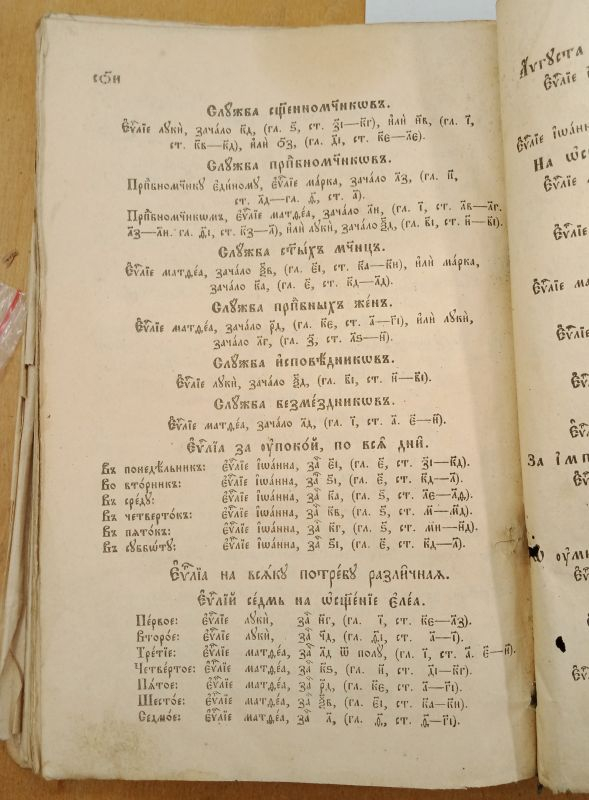 сѯ҃и
Слꙋ́жба сщ҃енномч҃никѡвъ.
Єѵⷢ҇лїе лꙋкѝ, зача́ло к҃д, (гл. ѕ҃, ст. з҃і—к҃г), и҆лѝ н҃в, (гл. і҃,
ст. к҃в—к҃д), и҆лѝ ѯ҃з, (гл. в҃і, ст. к҃е—л҃е).
Слꙋ́жба прпⷣбномч҃никѡвъ.
Прпⷣбномч҃никꙋ є҆ди́номꙋ, є҆ѵⷢ҇лїе ма́рка, зача́ло л҃з, (гл. и҃,
ст. л҃д—гл. ѳ҃, ст. а҃).
Прпⷣбномч҃никѡмъ, є҆ѵⷢ҇лїе матѳе́а, зача́ло л҃и, (гл. і҃, ст. л҃в—л҃г.
л҃з—л҃и. гл. ѳ҃і, ст. к҃з—л҃), и҆лѝ лꙋкѝ, зача́ло ѯ҃д, (гл. в҃і, ст. и҃—в҃і).
Слꙋ́жба ст҃ы́хъ мч҃ницъ.
Єѵⷢ҇лїе матѳе́а, зача́ло ѯ҃в, (гл. е҃і, ст. к҃а—к҃и), и҆лѝ ма́рка,
зача́ло к҃а, (гл. е҃, ст. к҃д—л҃д).
Слꙋ́жба прпⷣбныхъ же́нъ.
Єѵⷢ҇лїе матѳе́а, зача́ло р҃д, (гл. к҃е, ст. а҃—г҃і), и҆лѝ лꙋкѝ,
зача́ло л҃г, (гл. з҃, ст. л҃ѕ—н҃).
Слꙋ́жба и҆сповѣ́дникѡвъ.
Єѵⷢ҇лїе лꙋкѝ, зача́ло ѯ҃д, (гл. в҃і, ст. и҃—в҃і).
Слꙋ́жба безме́здникѡвъ.
Єѵⷢ҇лїе матѳе́а, зача́ло л҃д, (гл. і҃, ст. а҃. е҃—и҃).
Єѵⷢ҇лїа за ᲂу҆поко́й, по всѧ̑ дни̑.
Въ понедѣ́льникъ: є҆ѵⷢ҇лїе і҆ѡа́нна, заⷱ҇ е҃і, (гл. е҃, ст. з҃і—к҃д).
Во вто́рникъ: є҆ѵⷢ҇лїе і҆ѡа́нна, заⷱ҇ ѕ҃і, (гл. е҃, ст. к҃д—л҃).
Въ сре́дꙋ: є҆ѵⷢ҇лїе і҆ѡа́нна, заⷱ҇ к҃а, (гл. ѕ҃, ст. л҃е—л҃ѳ).
Въ четверто́къ: є҆ѵⷢ҇лїе і҆ѡа́нна, заⷱ҇ к҃в, (гл. ѕ҃, ст. м҃—м҃д).
Въ пѧто́къ: є҆ѵⷢ҇лїе і҆ѡа́нна, заⷱ҇ к҃г, (гл. ѕ҃, ст. м҃и—н҃д).
Въ сꙋббѡ́тꙋ: є҆ѵⷢ҇лїе і҆ѡа́нна, заⷱ҇ ѕ҃і, (гл. е҃, ст. к҃д—л҃).
Єѵⷢ҇лїа на всѧ́кꙋ потре́бꙋ разли́чнаѧ.
Єѵⷢ҇лїй се́дмь на ѡ҆сщ҃е́нїе є҆ле́а.
Пе́рвое: є҆ѵⷢ҇лїе лꙋкѝ, заⷱ҇ н҃г, (гл. і҃, ст. к҃е—л҃з).
Второ́е: є҆ѵⷢ҇лїе лꙋкѝ, заⷱ҇ ч҃д, (гл. ѳ҃і, ст. а҃—і҃).
Тре́тїе: є҆ѵⷢ҇лїе матѳе́а, заⷱ҇ л҃д ѿ полꙋ̀, (гл. і҃, ст. а҃. е҃—и҃).
Четве́ртое: є҆ѵⷢ҇лїе матѳе́а, заⷱ҇ к҃ѕ, (гл. и҃, ст. д҃і—к҃г).
Пѧ́тое: є҆ѵⷢ҇лїе матѳе́а, заⷱ҇ р҃д, (гл. к҃е, ст. а҃—г҃і).
Шесто́е: є҆ѵⷢ҇лїе матѳе́а, заⷱ҇ ѯ҃в, (гл. е҃і, ст. к҃а—к҃и).
Седмо́е: є҆ѵⷢ҇лїе матѳе́а, заⷱ҇ л҃, (гл. ѳ҃, ст. ѳ҃—г҃і).
А҆́ѵгꙋста
Єѵⷢ҇лїе
Єѵⷢ҇лїе і҆ѡа́нн
Єѵⷢ҇лїе
Єѵⷢ҇лїе
Єѵⷢ҇лїе
Єѵⷢ҇лїе